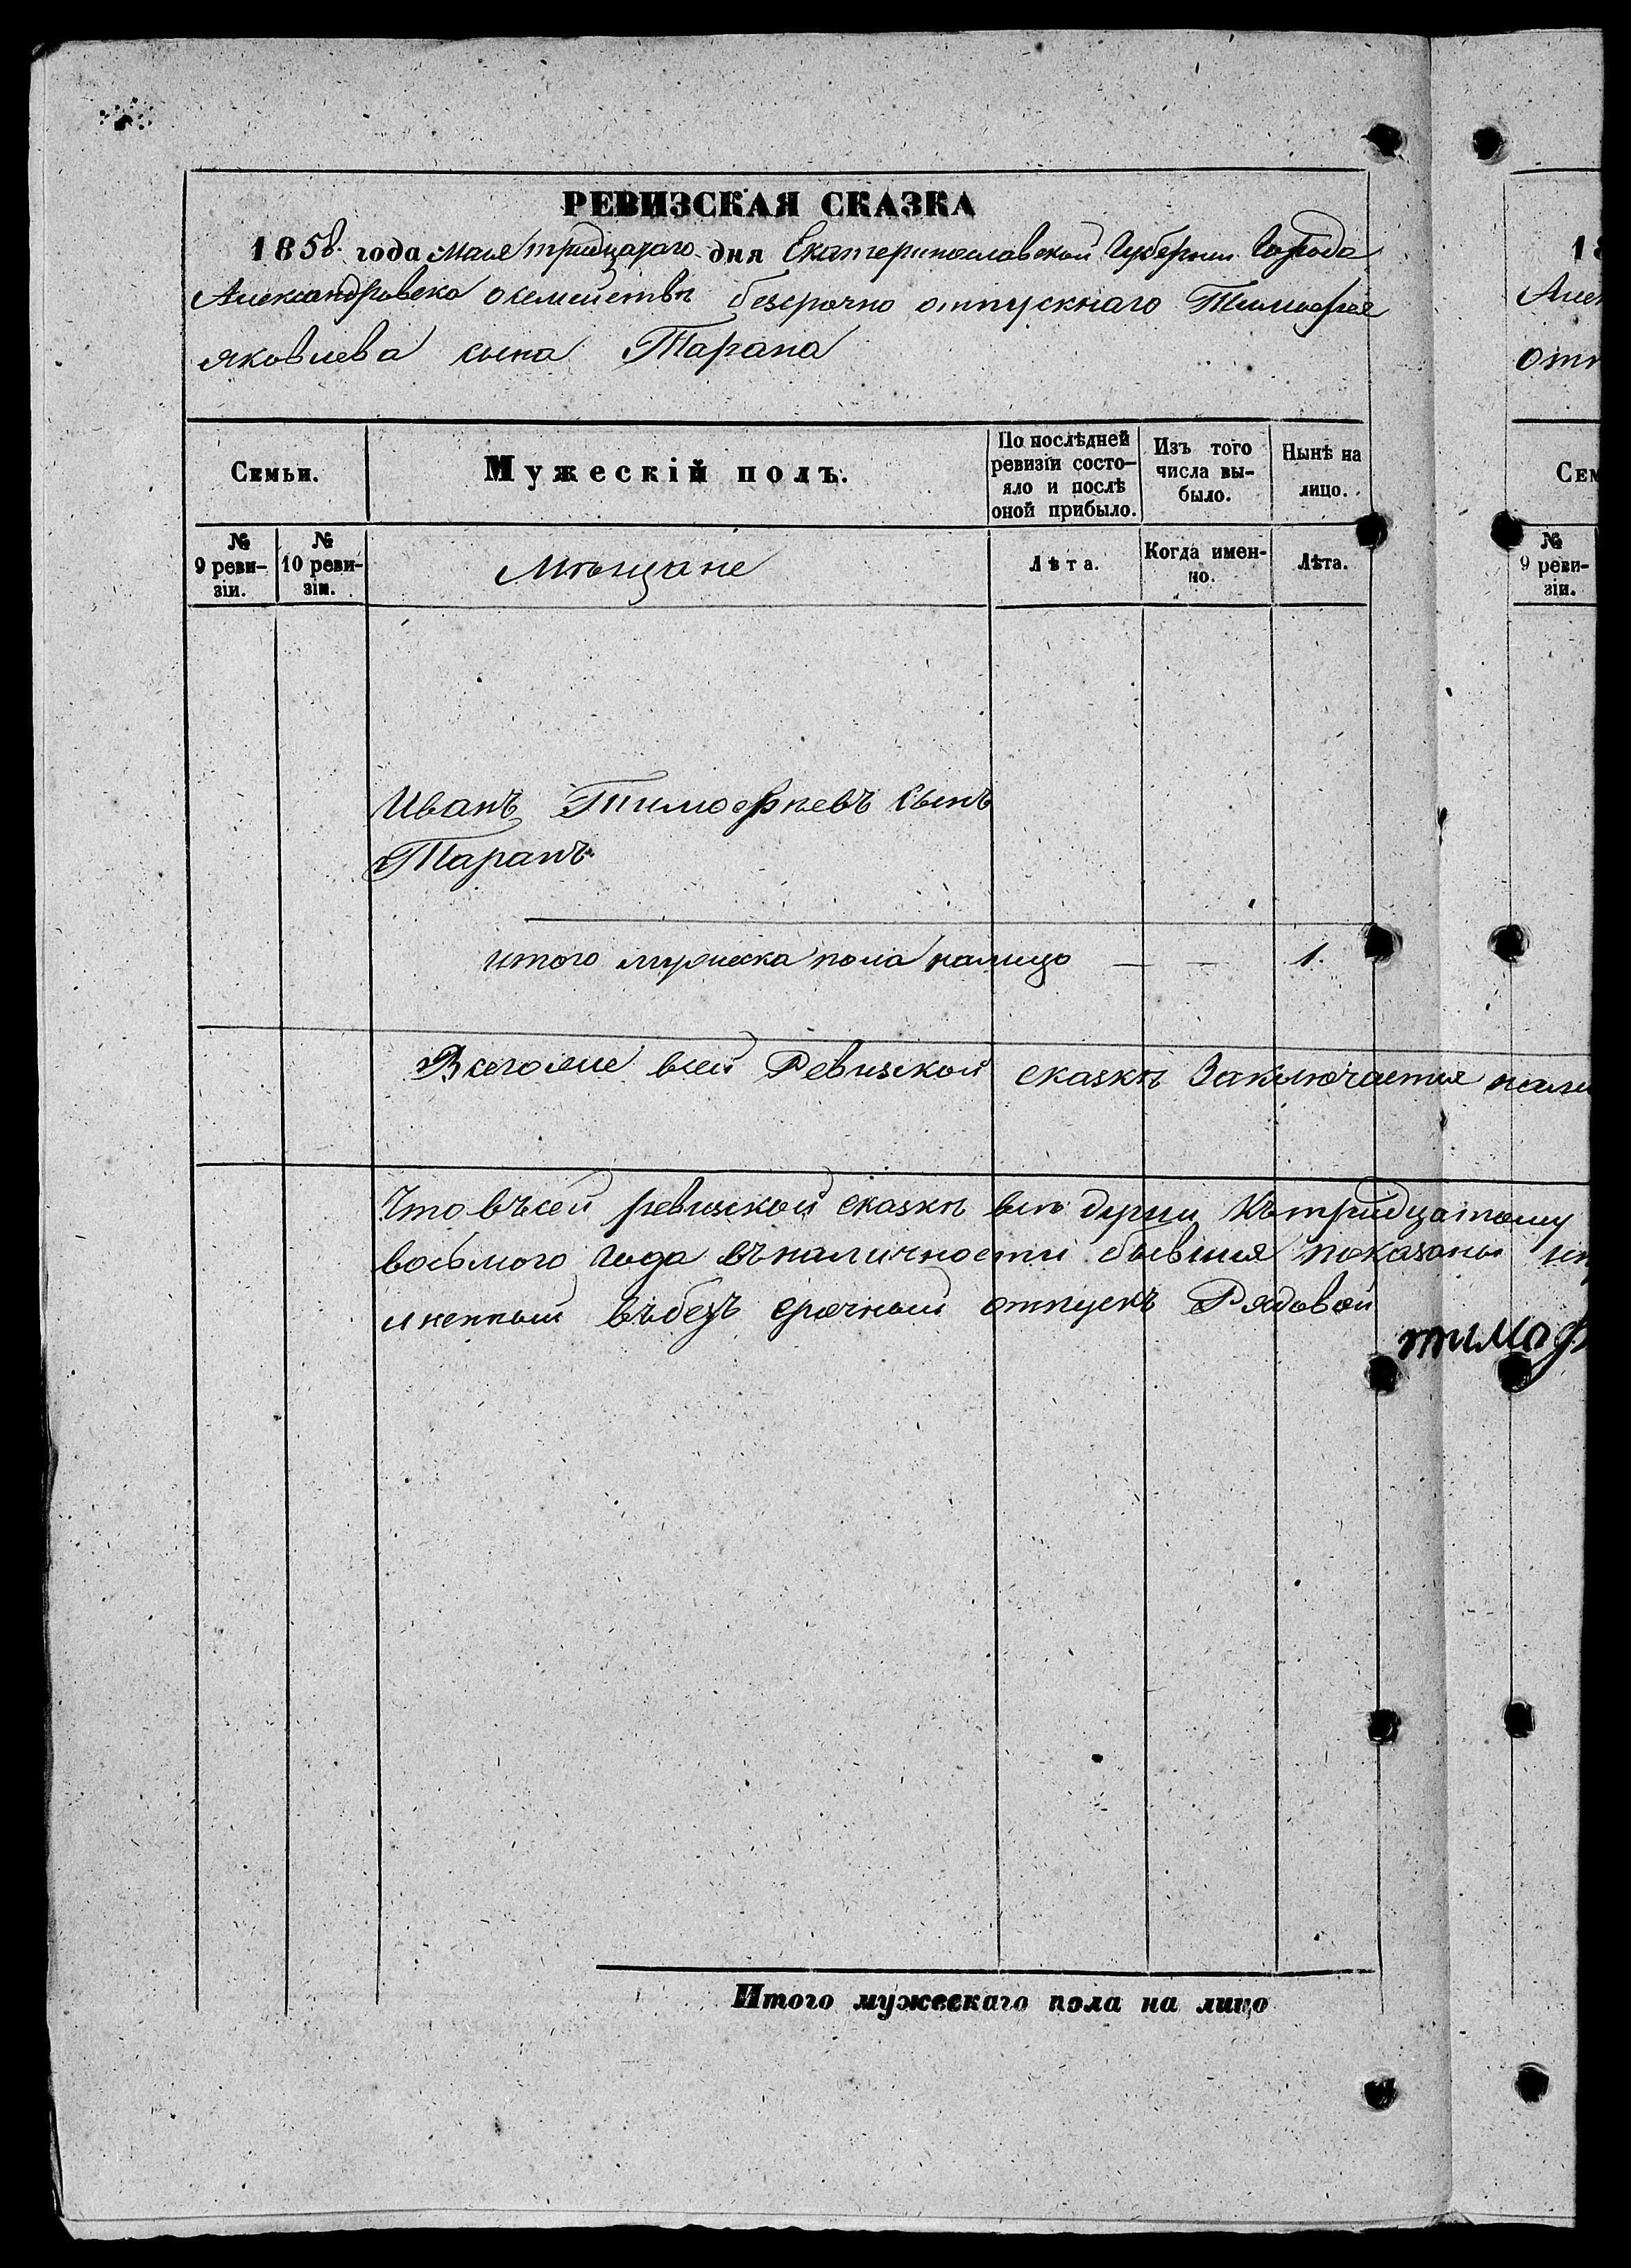 РЕВИЗСКАЯ СКАЗКА
1858 года Маія тридцатаго дня Екатеринославской Губерніи Города
Александровска о семействѣ безсрочно отпускнаго Тимофея
яковлева сына Тарана
Семьи.
Мужескій полъ.
По послѣдней
ревизіи состо-
яло и послѣ
оной прибыло.
Изъ того
числа вы-
было.
Нынѣ на
лицо.
№
9 реви-
зіи.
№
10 реви-
зіи.
Мѣщане
Лѣта.
Когда имен-
но.
Лѣта.
Иванъ Тимофѣевъ сынъ
Таранъ
итого мужеска пола налицо — — 1.
Всего же всей Ревизкой сказкѣ Заключается
Что въ сей ревизкой сказкѣ всѣ души Къ тридцатому
восьмого года въ наличности бывшия показаны
въ безъ срочный отпускъ Рядовой
тимоф
Итого мужескаго пола на лицо
18
Алек
отп
Сем
№
9 реви-
зіи.